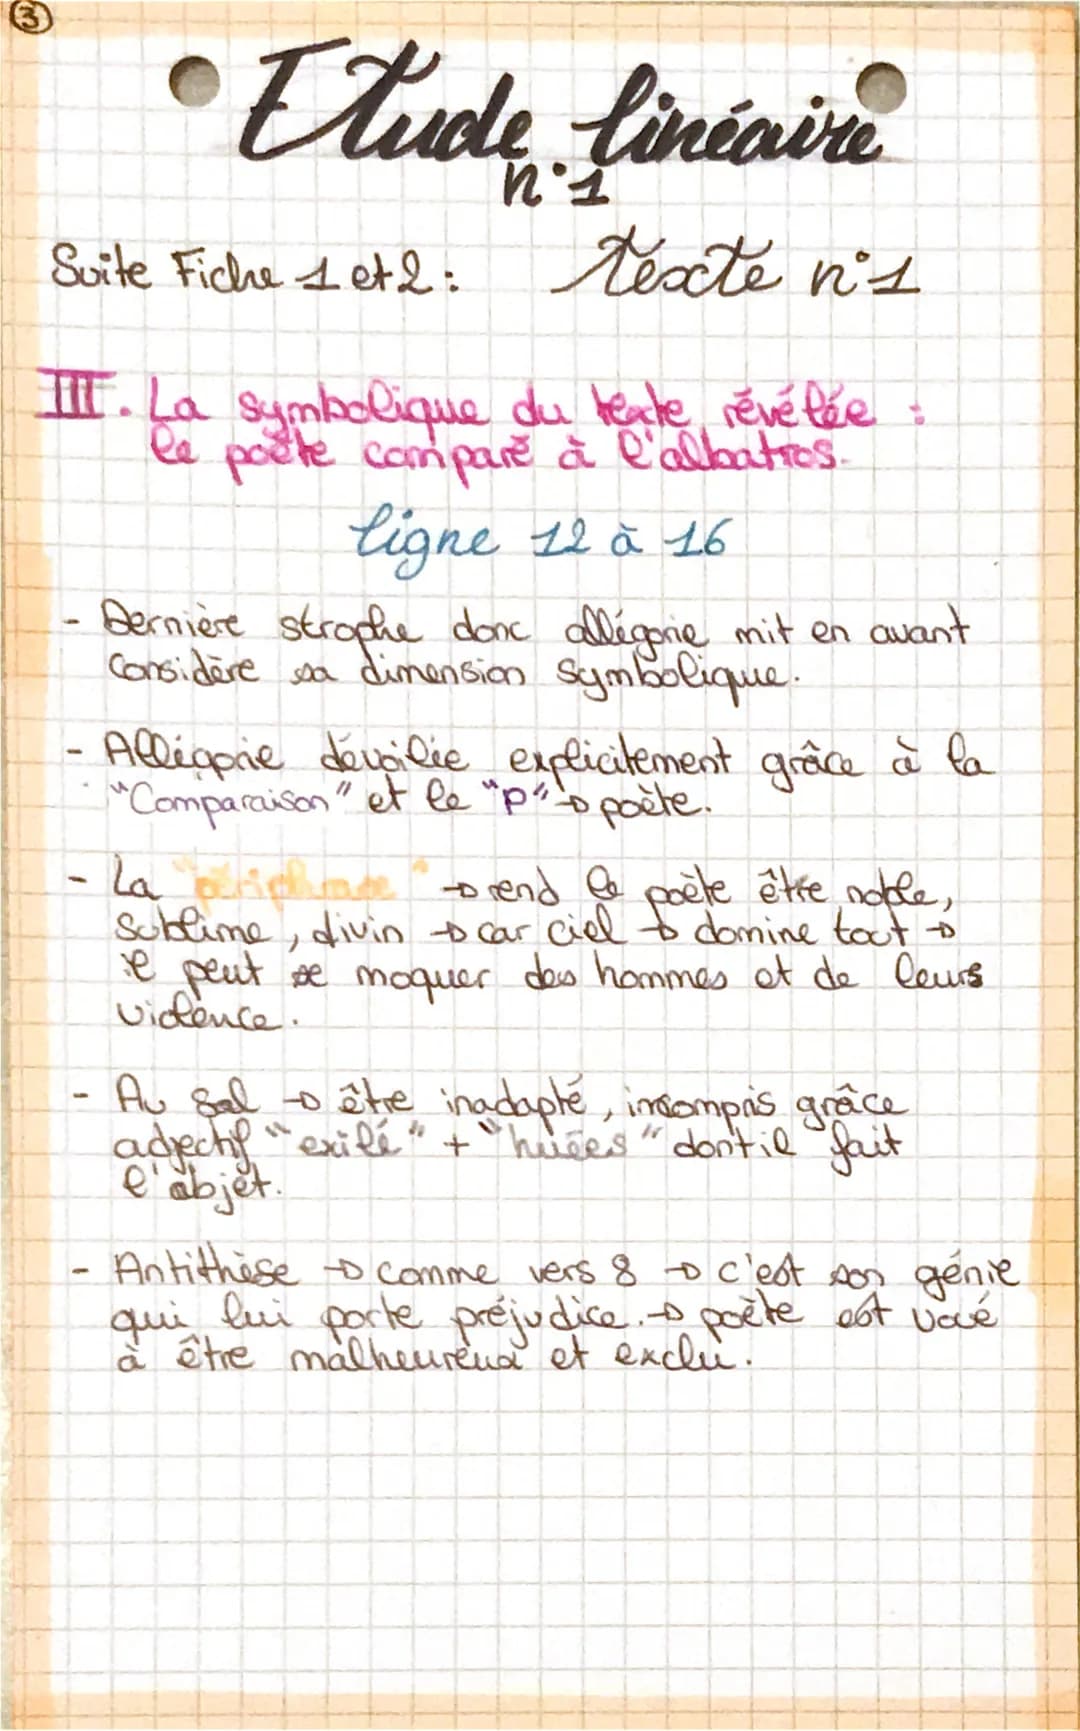 3
Etude linéaire
n°1
Suite Fiche 1 et 2 : Texte n°1
III. La symbolique du texte révélée :
le poète comparé à l'albatros.
ligne 12 à 16
- Dernière strophe donc allégorie mit en avant
Considère sa dimension symbolique.
- Allégorie dévoilée explicitement grâce à la
"Comparaison" et le "p" → poète.
- La "périphrase" → rend le poète être noble,
sublime, divin → car ciel → domine tout →
il peut se moquer des hommes et de leurs
violence.
- Au sol → être inadapté, incompris grâce
adjectif "exilé" + "huées" dont il fait
l'objet.
- Antithèse → comme vers 8 → c'est son génie
qui lui porte préjudice. → poète est voué
à être malheureux et exclu.